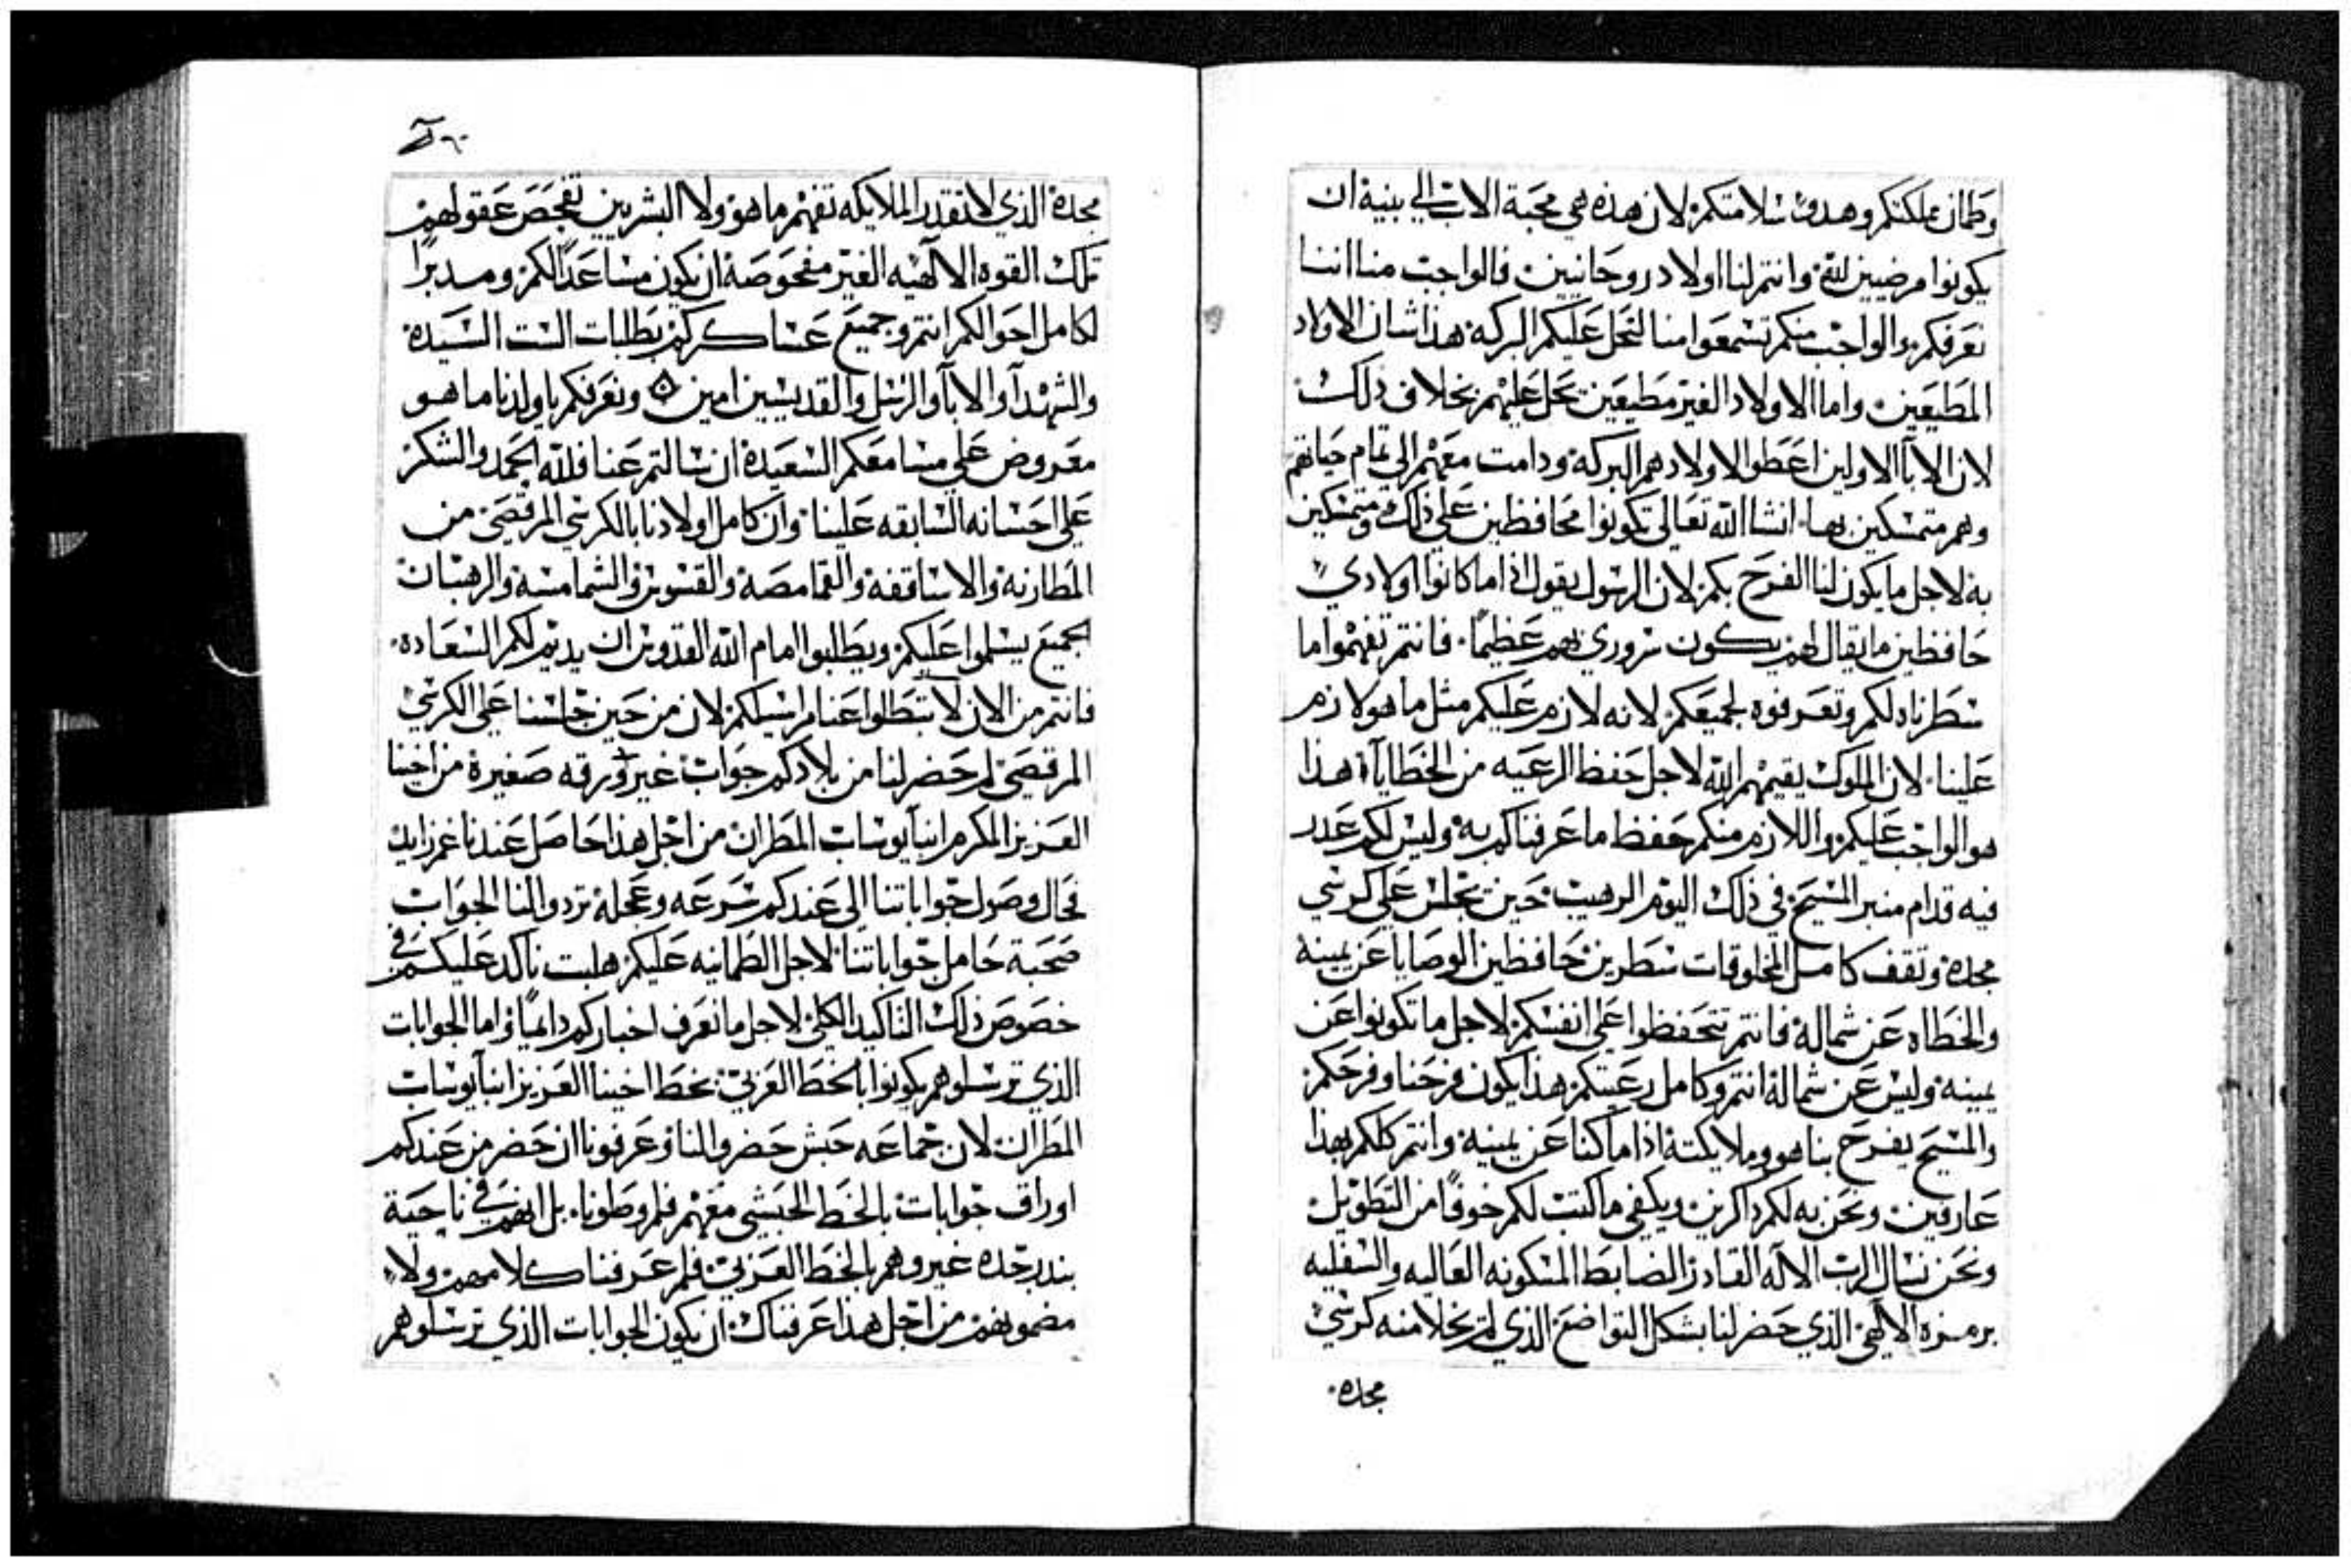 وطمان مملكتكم وهدو سلامتكم لان هذه هي محبة الاب الي بنيه ان
يكونوا مرضيين لله وانتم لنا اولاد روحانيين فالواجب منا اننا
نعرفكم والواجب منكم تسمعوا منا لتحل عليكم البركه هذا شان الاولاد
المطيعين واما الاولاد الغير مطيعين تحل عليهم بخلاف ذلك
لان الابآ الاولين اعطوا لاولادهم البركه ودامت معهم الي تمام حياتهم
وهم متمسكين بها انشا الله تعالي تكونوا محافظين علي ذلك ومتمسكين
به لاجل ما يكون لنا الفرح بكم لان الرسول يقول اذا ما كانوا اولادي
حافظين ما يقال لهم يكون سروري بهم عظيمًا فانتم تفهموا ما
سطرناه لكم وتعرفوه لجميعكم لانه لازم عليكم مثل ما هو لازم
علينا لان الملوك يقيمهم الله لاجل حفظ الرعيه من الخطايآ هذا
هو الواجب عليكم واللازم منكم حفظ ما عرفناكم به وليس لكم عدر
فيه قدام منبر المسيح في ذلك اليوم الرهيب حين يجلس علي كرسي
مجده وتقف كامل المخلوقات سطرين حافظين الوصايا عن يمينه
والخطاه عن شماله فانتم تتحفظوا علي انفسكم لاجل ما تكونوا عن
يمينه وليس عن شماله انتم وكامل رعيتكم هذا يكون فرحنا وفرحكم
والمسيح يفرح بنا هو وملايكته اذا ما كنا عن يمينه وانتم كلكم بهذا
عارفين ونحن به لكم داكرين ويكفي ما كتبت لكم خوفًا من التطويل
ونحن نسال الرب الاله القادر الضابط المسكونه العاليه والسفليه
برمزه الالهي الذي حضر لنا بشكل التواضع الذي لم يخلا منه كرسي
مجده
٦٠
مجده الذي لا تقدر الملايكه تفهم ما هو ولا البشريين تفحص عقولهم
تلك القوه الالهيه الغير مفحوصه ان يكون مساعدًا لكم ومدبرًا
لكامل احوالكم انتم وجميع عساكركم بطلبات الست السيده
والشهدآ والابآ والرسل والقديسين امين ونعرفكم ياولدنا ما هو
معروض علي مسامعكم السعيده ان سالتم عنا فلله الحمد والشكر
علي احسانه السابقه علينا وان كامل اولادنا بالكرسي المرقصي من
المطارنه والاساقفه والقمامصه والقسوس والشمامسه والرهبان
الجميع يسلموا عليكم ويطلبوا امام الله القدوس ان يديم لكم السعاده
فانتم من الان لا تبطلوا عنا مراسيلكم لان من حين جلسنا علي الكرسي
المرقصي لم حضر لنا من بلادكم جواب غير ورقه صغيرة من اخينا
العزيز المكرم انبآ يوساب المطران من اجل هذا حاصل عندنا غم زايد
فحال وصول جواباتنا الي عندكم سرعه وعجله تردوا لنا الجواب
صحبة حامل جواباتنا لاجل الطمانيه عليكم هلبت ناكد عليكم في
خصوص ذلك التاكيد الكلي لاجل ما نعرف اخباركم دايمًا واما الجوابات
الذي ترسلوهم يكونوا بالخط العربي بخط اخينا العزيز انبآ يوساب
المطران لان جماعه حبش حضروا لنا وعرفونا ان حضر من عندكم
اوراق جوابات بالخط الحبشي معهم فلم وطونا بل انهم في ناحية
بندر جده غيروهم بالخط العربي فلم عرفنا كلامهم ولا
مضمونهم من اجل هذا عرفناك ان يكون الجوابات الذي ترسلوهم